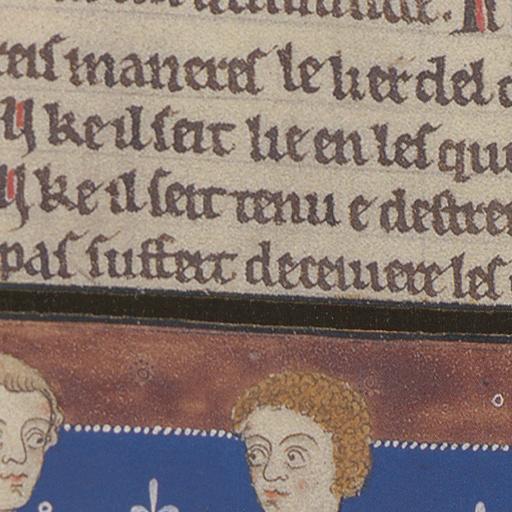 reis maneres le lier del
ke il seit lie en les que
ke il seit tenu e destrei
pas suffert deceiuere les